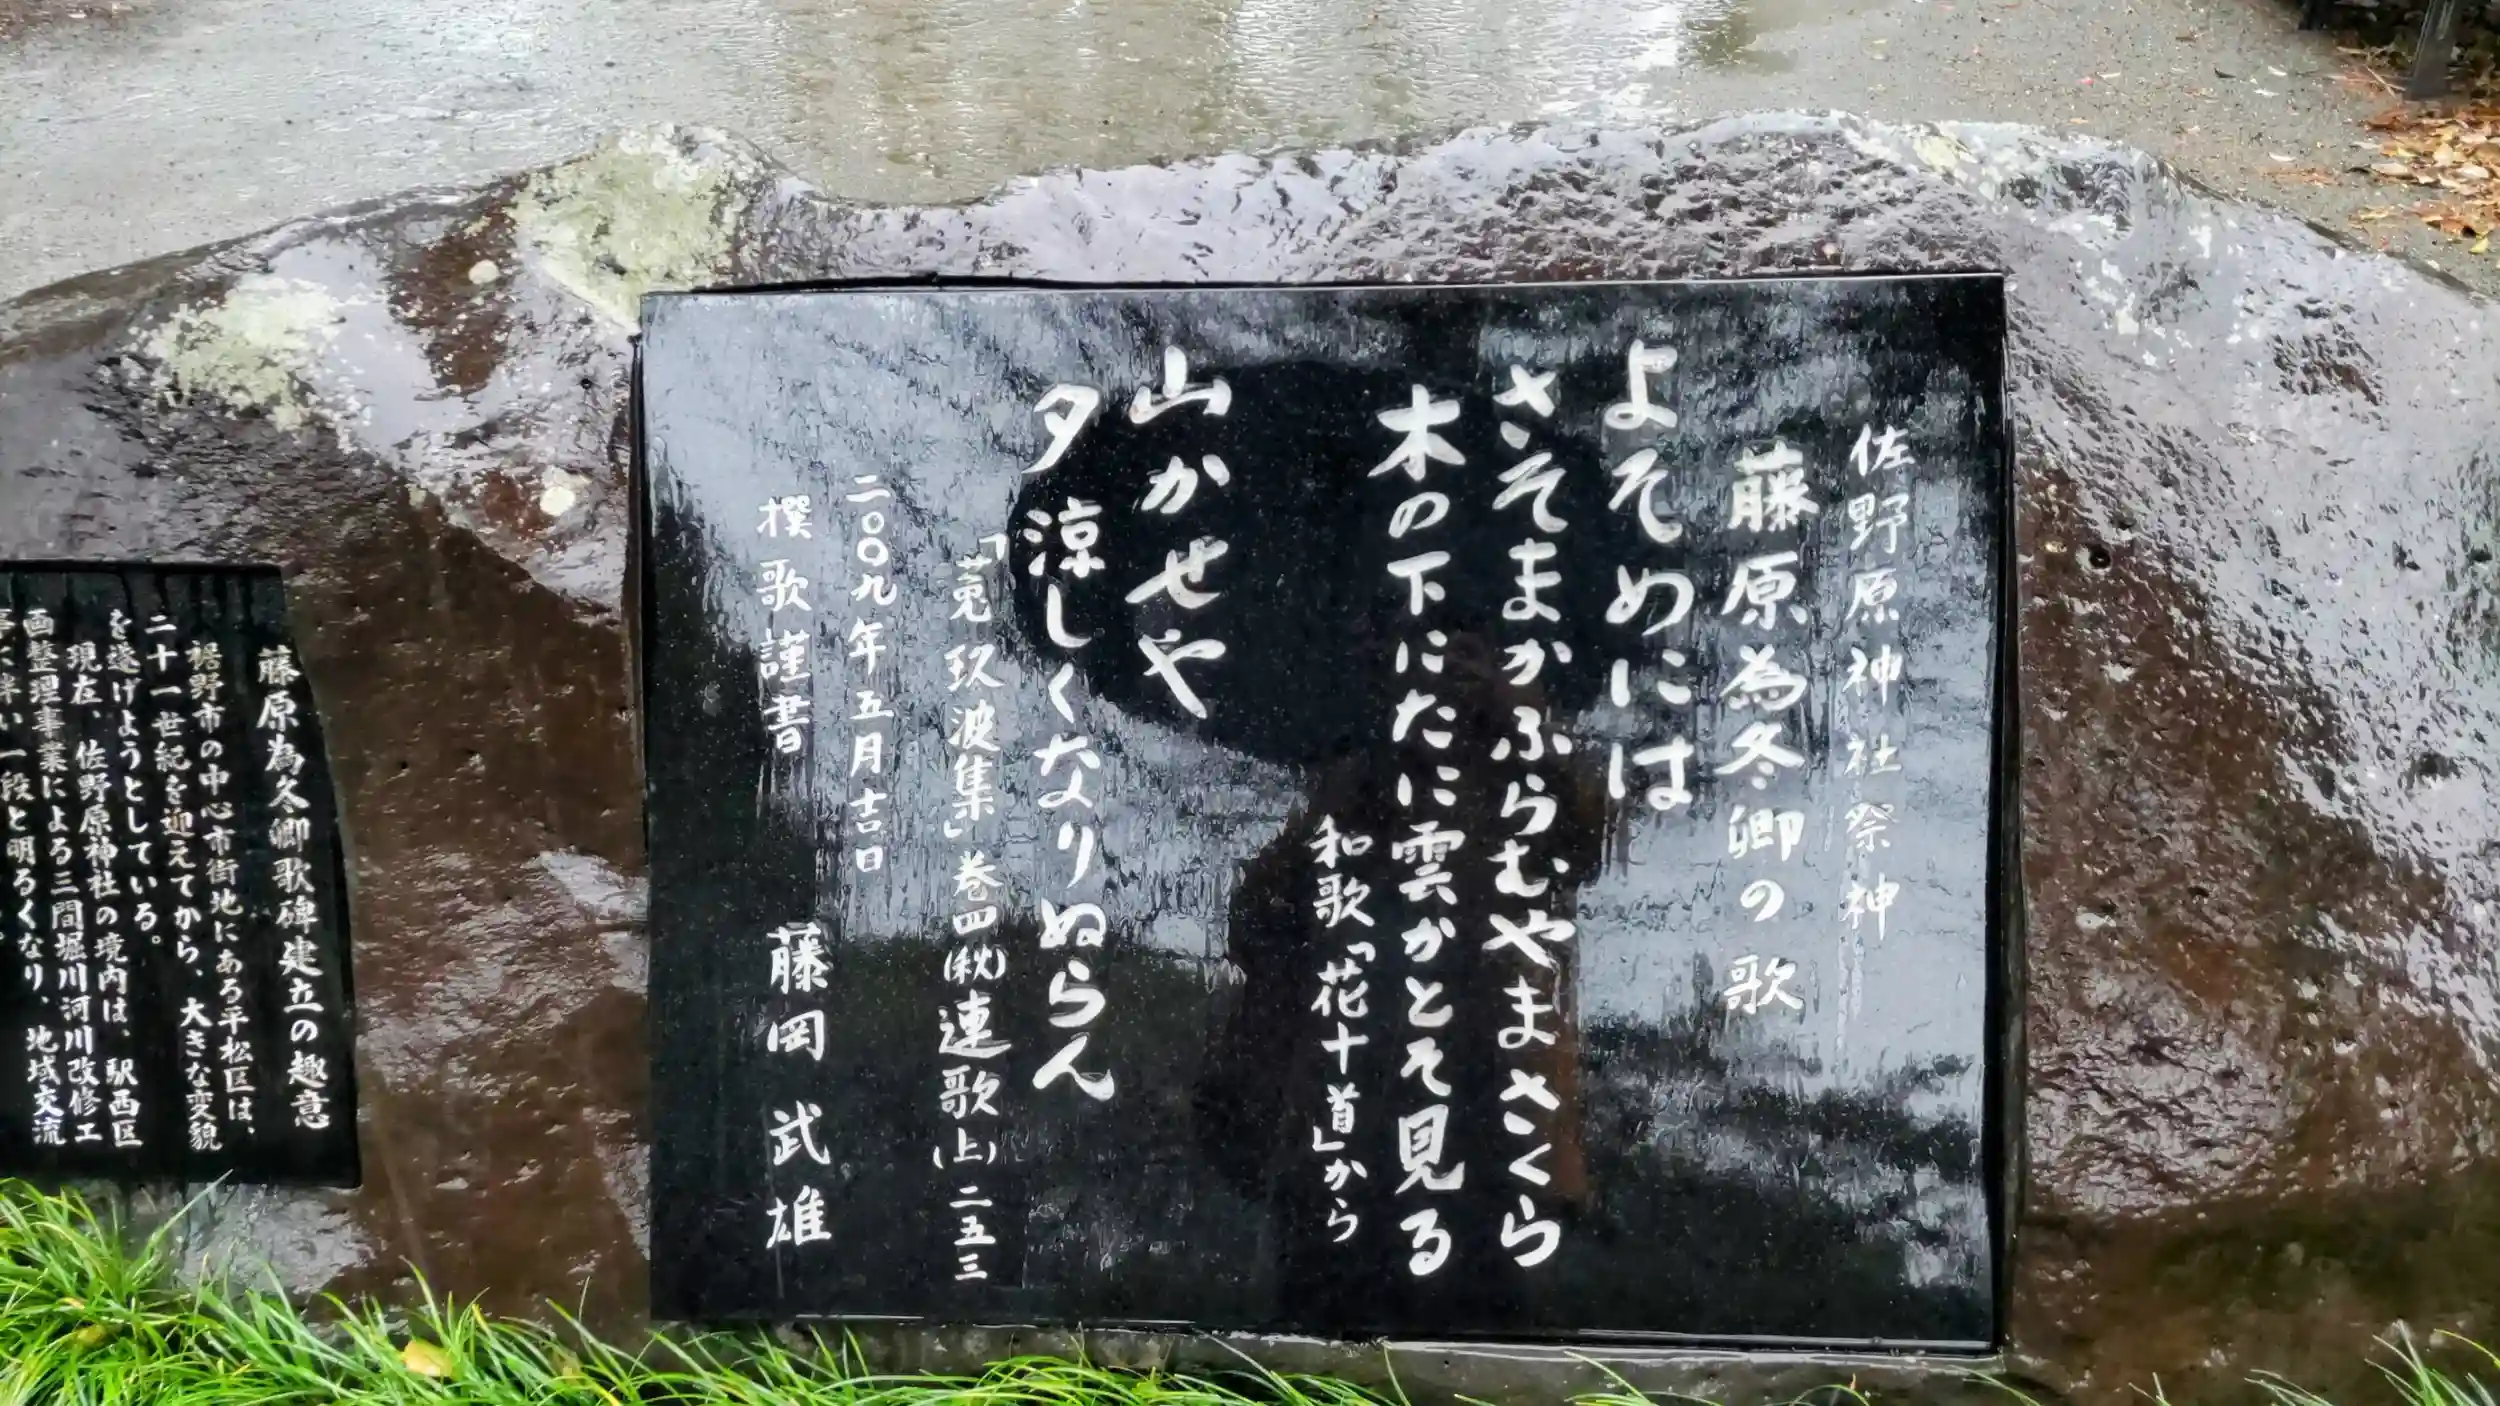 佐野原神社祭神
藤原為冬卿の歌
よそめには
さそまかふらむやまさくら
木の下にたに雲かとそ見る
和歌「花十首」から
山かせや
夕涼しくなりぬらん
「菟玖波集」巻四(秋)連歌(上)二五三
二〇〇九年五月吉日
撰歌謹書 藤岡武雄
藤原為冬卿歌碑建立の趣意
裾野市の中心市街地にある平松区は、
二十一世紀を迎えてから、大きな変貌
を遂げようとしている。
現在、佐野原神社の境内は、駅西区
画整理事業による三間堀川河川改修工
事に伴い一段と明るくなり、地域交流